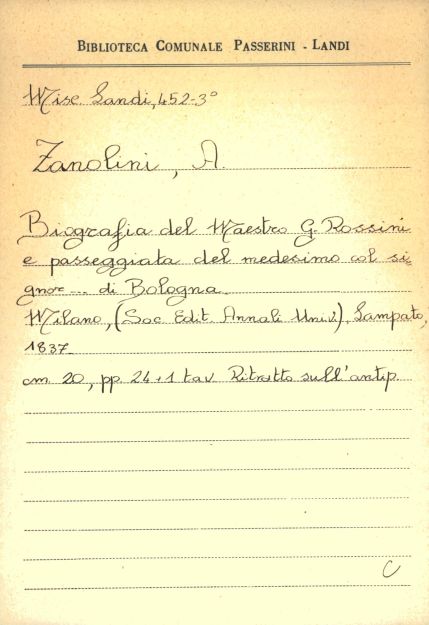 BIBLIOTECA COMUNALE PASSERINI - LANDI
Misc. Landi, 452-3°
Zanolini, A.
Biografia del Maestro G. Rossini
e passeggiata del medesimo col si-
gnor ... di Bologna.
Milano, (Soc. Edit. Annali Univ.), Lampato,
1837.
cm. 20, pp. 24+1 tav. Ritratto sull'antip.
C